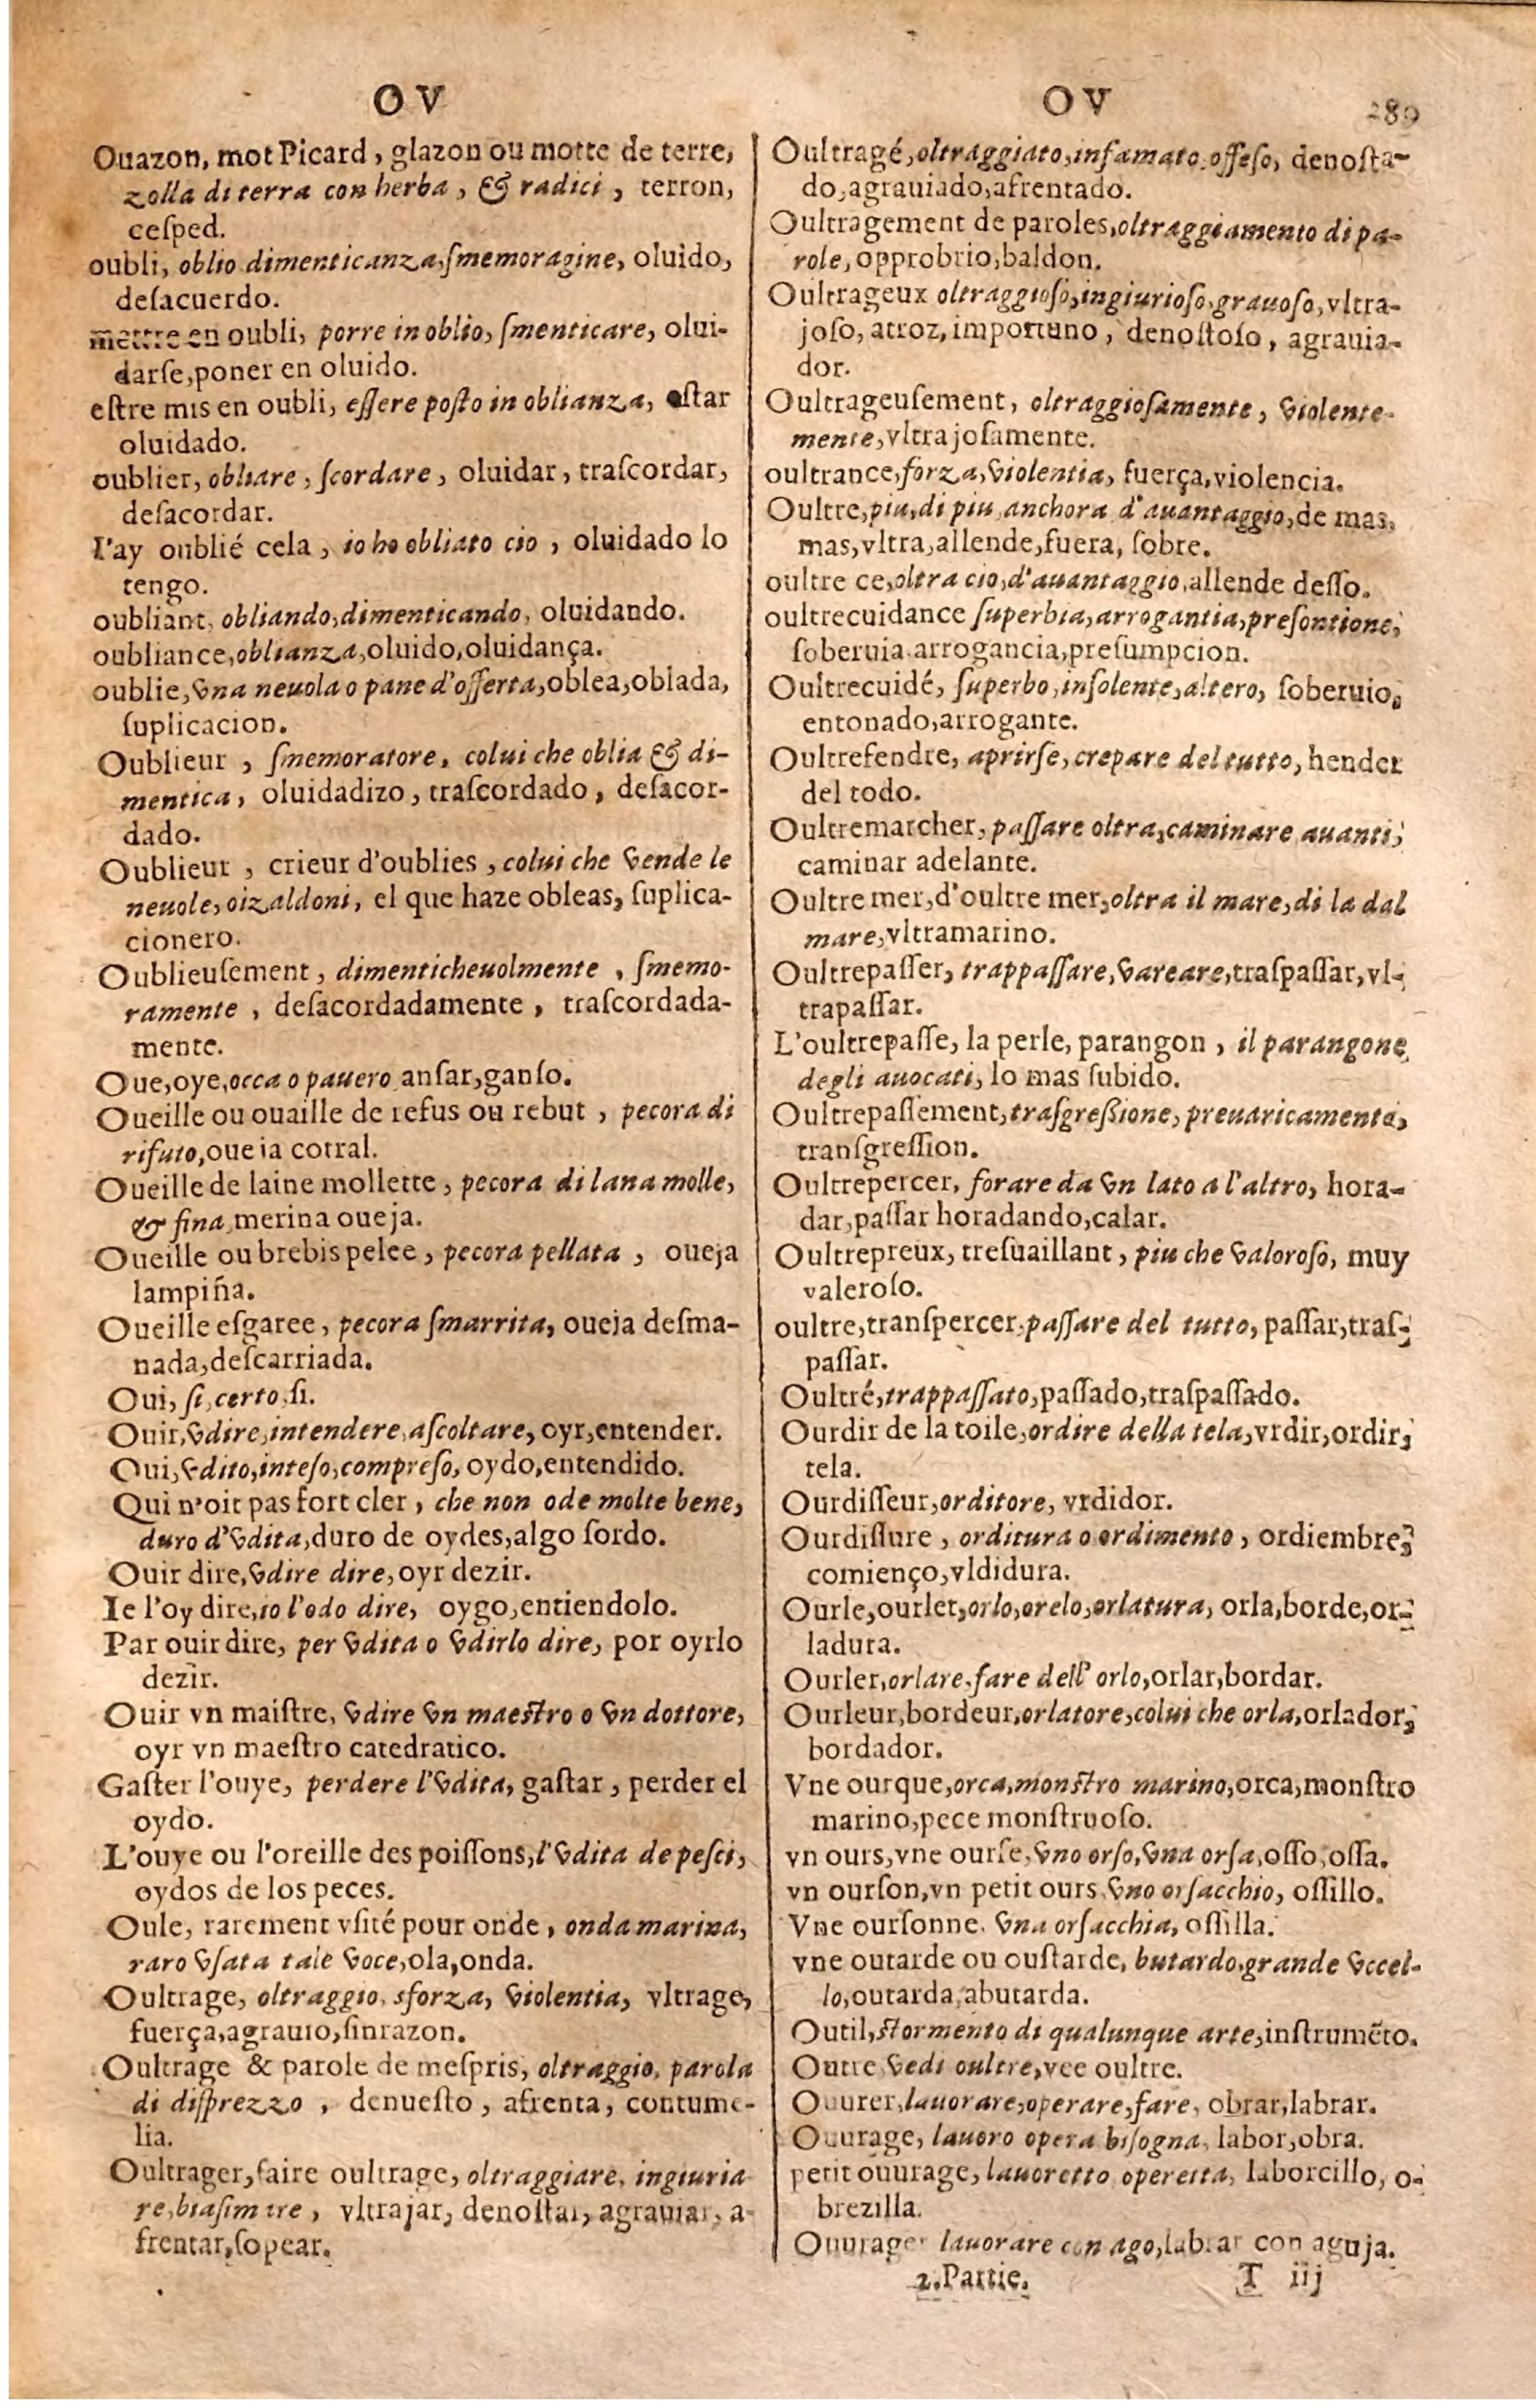 OV
Ouazon, mot Picard, glazon ou motte de terre,
zolla di terra con herba, & radici, terron,
ceſped.
oubli, oblio dimenticanza, ſmemoragine, oluido,
deſacuerdo.
mettre en oubli, porre in oblio, ſmenticare, olui-
darſe, poner en oluido.
eſtre mis en oubli, eſſere poſto in oblianza, eſtar
oluidado.
oublier, obliare, ſcordare, oluidar, traſcordar,
deſacordar.
I'ay oublié cela, io ho obliato cio, oluidado lo
tengo.
oubliant, obliando, dimenticando, oluidando.
oubliance, oblianza, oluido, oluidança.
oublie, vna neuola o pane d'offerta, oblea, oblada,
ſuplicacion.
Oublieur, ſmemoratore, colui che oblia & di-
mentica, oluidadizo, traſcordado, deſacor-
dado.
Oublieur, crieur d'oublies, colui che vende le
neuole, oizaldoni, el que haze obleas, ſuplica-
cionero.
Oublieuſement, dimenticheuolmente, ſmemo-
ramente, deſacordadamente, traſcordada-
mente.
Oue, oye, occa o pauero anſar, ganſo.
Oueille ou ouaille de refus ou rebut, pecora di
rifuto, oueia corral.
Oueille de laine mollette, pecora di lana molle,
& fina, merina oueja.
Oueille ou brebis pelee, pecora pellata, oueja
lampiña.
Oueille eſgaree, pecora ſmarrita, oueja deſma-
nada, deſcarriada.
Oui, ſi, certo, ſi.
Ouir, vdire, intendere, aſcoltare, oyr, entender.
Oui, vdito, inteſo, compreſo, oydo, entendido.
Qui n'oit pas fort cler, che non ode molte bene,
duro d'vdita, duro de oydes, algo ſordo.
Ouir dire, vdire dire, oyr dezir.
Ie l'oy dire, io l'odo dire, oygo, entiendolo.
Par ouir dire, per vdita o vdirlo dire, por oyrlo
dezir.
Ouir vn maiſtre, vdire vn maeſtro o vn dottore,
oyr vn maeſtro catedratico.
Gaſter l'ouye, perdere l'vdita, gaſtar, perder el
oydo.
L'ouye ou l'oreille des poiſſons, l'vdita de peſci,
oydos de los peces.
Oule, rarement vſité pour onde, onda marina,
raro vſata tale voce, ola, onda.
Oultrage, oltraggio, sforza, violentia, vltrage,
fuerça, agrauio, ſinrazon.
Oultrage & parole de meſpris, oltraggio, parola
di diſprezzo, denueſto, afrenta, contume-
lia.
Oultrager, faire oultrage, oltraggiare, ingiuria
re, biaſimare, vltrajar, denoſtar, agrauiar, a-
frentar, ſopear.
OV 289
Oultragé, oltraggiato, infamato, offeſo, denoſta-
do, agrauiado, afrentado.
Oultragement de paroles, oltraggiamento di pa-
role, opprobrio, baldon.
Oultrageux oltraggioſo, ingiurioſo, grauoſo, vltra-
joſo, atroz, importuno, denoſtoſo, agrauia-
dor.
Oultrageuſement, oltraggioſamente, violente-
mente, vltrajoſamente.
oultrance, forza, violentia, fuerça, violencia.
Oultre, piu, di piu anchora d'auantaggio, de mas,
mas, vltra, allende, fuera, ſobre.
oultre ce, oltra cio, d'auantaggio, allende deſſo.
oultrecuidance ſuperbia, arrogantia, preſontione,
ſoberuia arrogancia, preſumpcion.
Oultrecuidé, ſuperbo, inſolente, altero, ſoberuio,
entonado, arrogante.
Oultrefendre, aprirſe, crepare del tutto, hender
del todo.
Oultremarcher, paſſare oltra, caminare auanti,
caminar adelante.
Oultre mer, d'oultre mer, oltra il mare, di la dal
mare, vltramarino.
Oultrepaſſer, trappaſſare, vareare, traſpaſſar, vl-
trapaſſar.
L'oultrepaſſe, la perle, parangon, il parangone
degli auocati, lo mas ſubido.
Oultrepaſſement, traſgreſſione, preuaricamente,
tranſgreſſion.
Oultrepercer, forare da vn lato a l'altro, hora-
dar, paſſar horadando, calar.
Oultrepreux, treſuaillant, piu che valoroſo, muy
valeroſo.
oultre, tranſpercer, paſſare del tutto, paſſar, traſ-
paſſar.
Oultré, trappaſſato, paſſado, traſpaſſado.
Ourdir de la toile, ordire della tela, vrdir, ordir,
tela.
Ourdiſſeur, orditore, vrdidor.
Ourdiſſure, orditura o ordimento, ordiembre,
comienço, vldidura.
Ourle, ourlet, orlo, orelo, orlatura, orla, borde, or-
ladura.
Ourler, orlare, fare dell' orlo, orlar, bordar.
Ourleur, bordeur, orlatore, colui che orla, orlador,
bordador.
Vne ourque, orca, monſtro marino, orca, monſtro
marino, pece monſtruoſo.
vn ours, vne ourſe, vno orſo, vna orſa, oſſo, oſſa.
vn ourſon, vn petit ours, vno orſacchio, oſſillo.
Vne ourſonne, vna orſacchia, oſſilla.
vne outarde ou ouſtarde, butardo, grande vccel-
lo, outarda, abutarda.
Outil, ſtormento di qualunque arte, inſtrumẽto.
Outre, vedi oultre, vee oultre.
Ouurer, lauorare, operare, fare, obrar, labrar.
Ouurage, lauoro opera biſogna, labor, obra.
petit ouurage, lauoretto operetta, laborcillo, o-
brezilla.
Ouurager lauorare con ago, labrar con aguja.
2. Partie. T iij